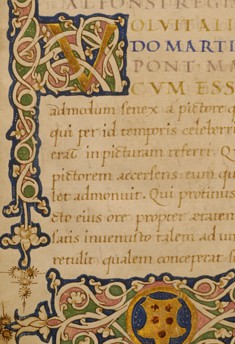 ALFONSI REGIS
OLVITALI
DO MARTI
PONT· MA
CVM ESS
admodum senex a pictore q
qui per id temporis celeberri
erat in picturam referri. Q
pictorem accersens: eum qui
let admonuit. Qui protinus
cto eius ore: propter
satis invenusto talem ad un
retulit qualem conceperat